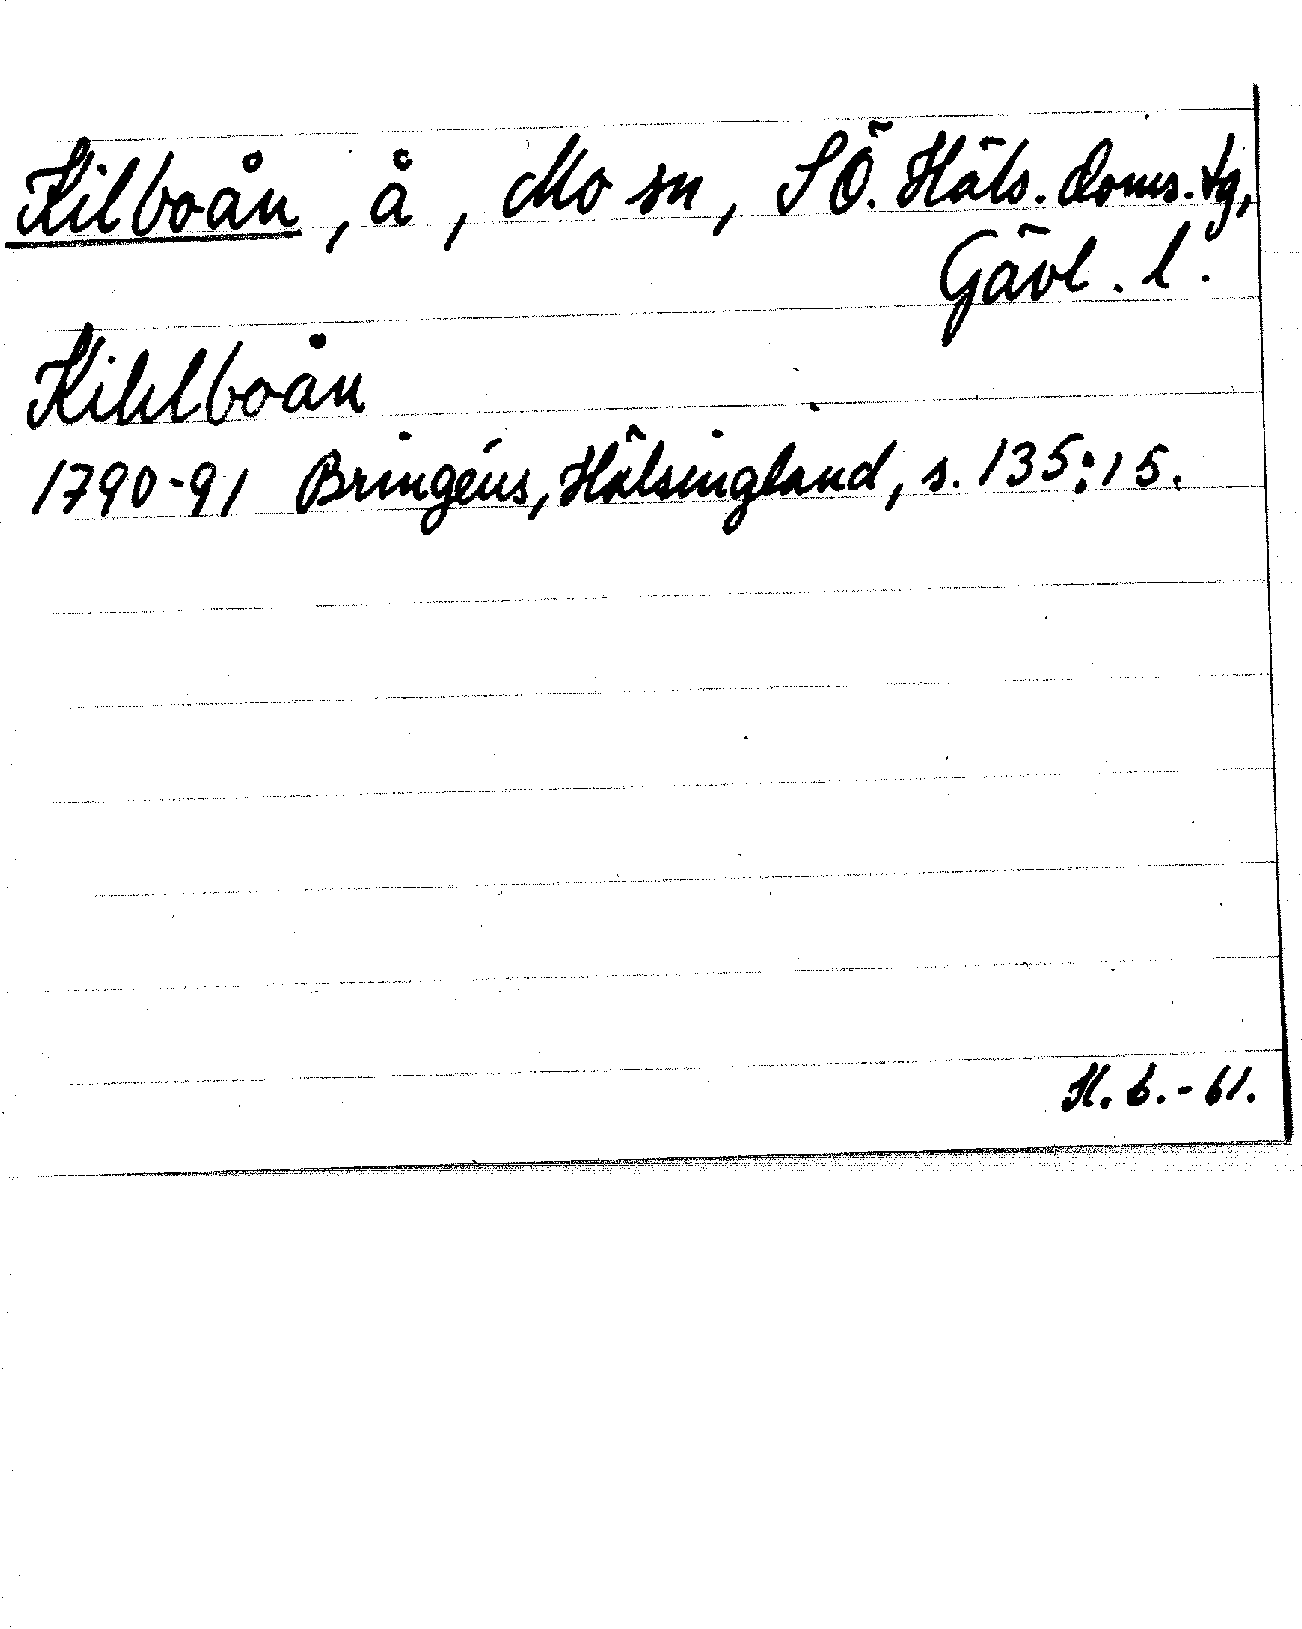 Kilboån, å, Mo sn, SÖ. Häls. doms. tg,
Gävl. l.
Kihlboån
1790-91 Bringéus, Hälsingland, s. 135:15.
H. b. - 61.